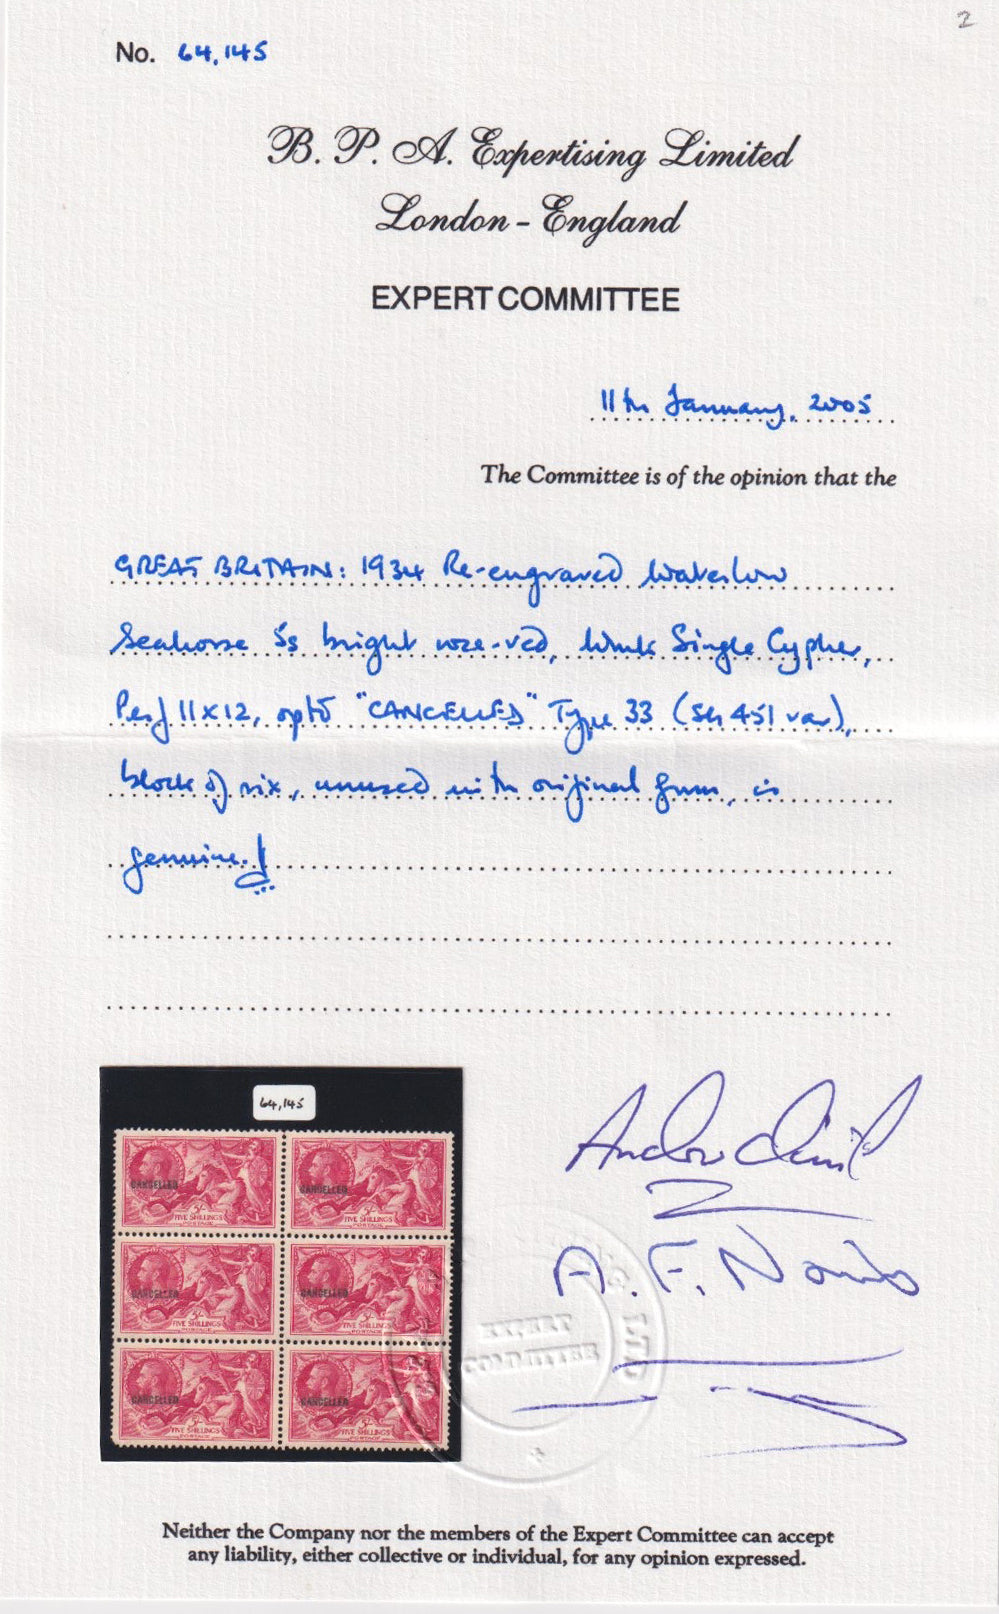 2
No. 64,145
B. P. A. Expertising Limited
London - England
EXPERT COMMITTEE
11th January, 2005
The Committee is of the opinion that the
GREAT BRITAIN: 1934 Re-engraved Waterlow
Seahorse 5s bright rose-red, Wmk Single Cypher,
Perf 11x12, optd "CANCELLED" Type 33 (SG 451 var),
block of six, unused with original gum, is
genuine.
64,145
CANCELLED CANCELLED
5/- 5/-
FIVE SHILLINGS FIVE SHILLINGS
POSTAGE POSTAGE
CANCELLED CANCELLED
5/- 5/-
FIVE SHILLINGS FIVE SHILLINGS
POSTAGE POSTAGE
CANCELLED CANCELLED
5/- 5/-
FIVE SHILLINGS FIVE SHILLINGS
POSTAGE POSTAGE
A. F. Norris
EXPERT
COMMITTEE
LTD
Neither the Company nor the members of the Expert Committee can accept
any liability, either collective or individual, for any opinion expressed.